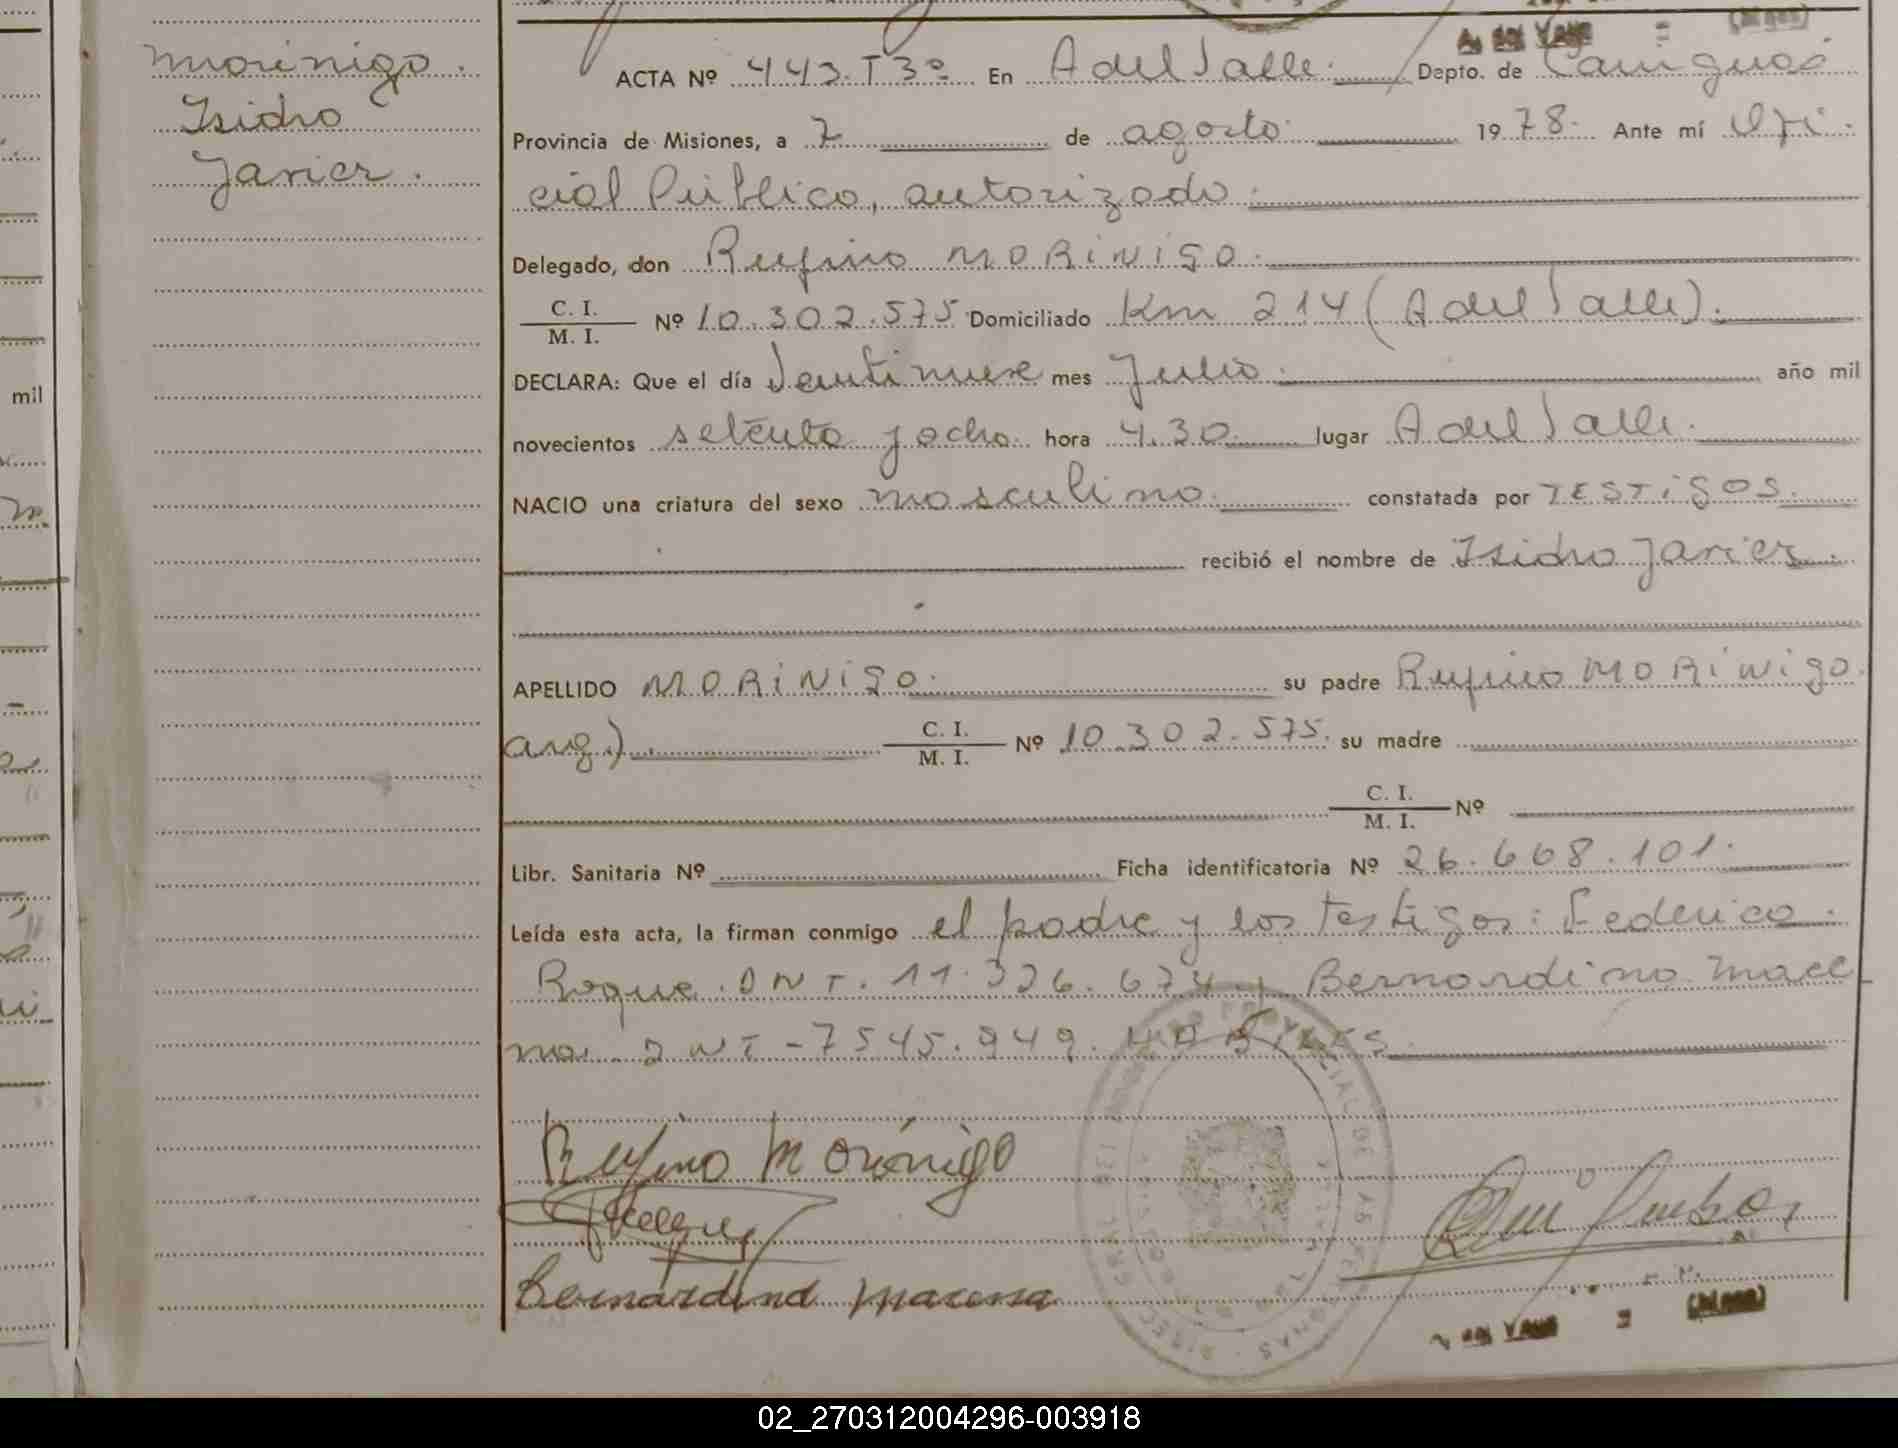 Morinigo.
Isidro
Javier.
A. DEL VALLE = (Mnes)
ACTA Nº 443. T 3º En A del Valle. Depto. de Cainguás
Provincia de Misiones, a 7 de agosto 1978. Ante mí Ofi
cial Público, autorizado.
Delegado, don Rufino MORINIGO.
C. I.
M. I. Nº 10.302.575 Domiciliado Km 214 (A del Valle).
DECLARA: Que el día Veintinueve mes Julio. año mil
novecientos setenta y ocho. hora 4.30. lugar A del Valle.
NACIO una criatura del sexo masculino. constatada por TESTIGOS.
recibió el nombre de Isidro Javier.
APELLIDO MORINIGO. su padre Rufino MORINIGO.
arg.). C. I.
M. I. Nº 10.302.575. su madre
C. I.
M. I. Nº
Libr. Sanitaria Nº Ficha identificatoria Nº 26.668.101.
Leída esta acta, la firman conmigo el padre y los testigos: Federico.
Roque. DNI. 11.326.674 y Bernardino Mace
na. DNI - 7545.949. HABILES.
Rufino Morínigo
Bernardino Macena
DEL VALLE = (Mnes)
mil
02_270312004296-003918